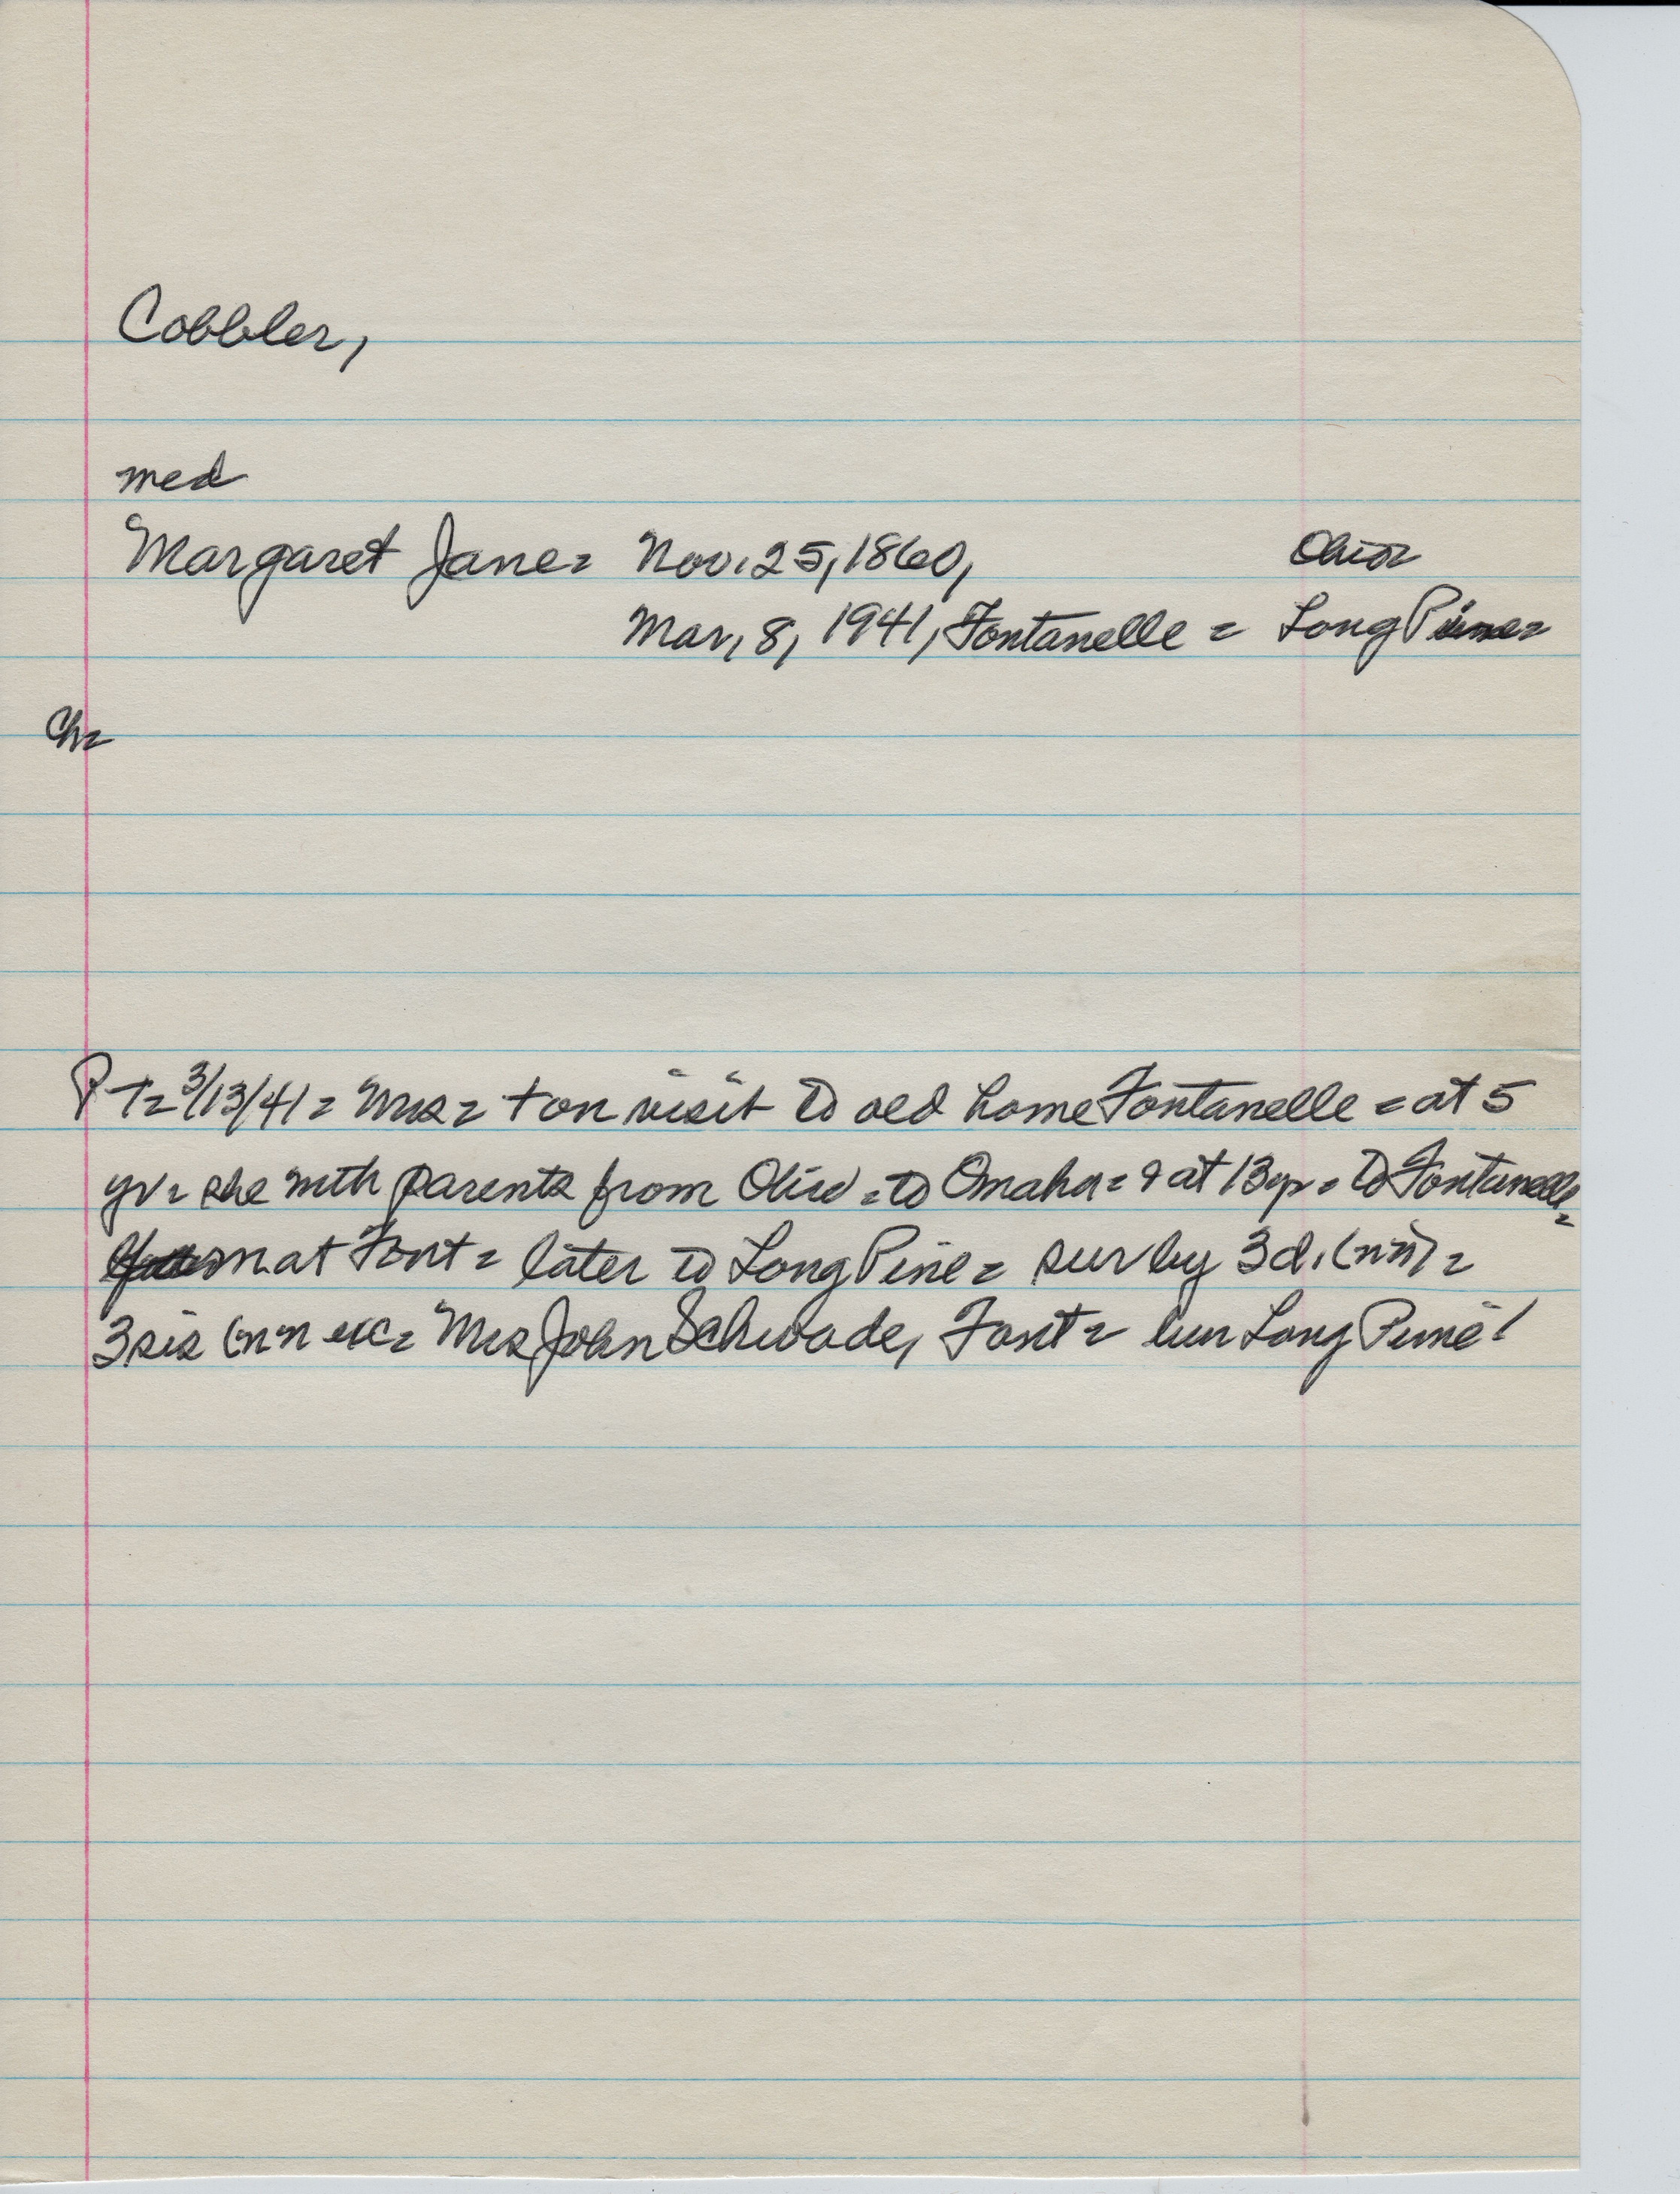 Cobbler,
med
Margaret Jane = Nov. 25, 1860, Ohio =
Mar, 8, 1941, Fontanelle = Long Pine =
Ch =
PT = 3/13/41 = Mrs = + on visit to old home Fontanelle = at 5
yr = she with parents from Ohio = to Omaha = & at 13 yr = to Fontanelle =
m at Font = later to Long Pine = sur by 3 d. (nn) =
3 sis (nn exc = Mrs John Schwade, Font = bur Long Pine!